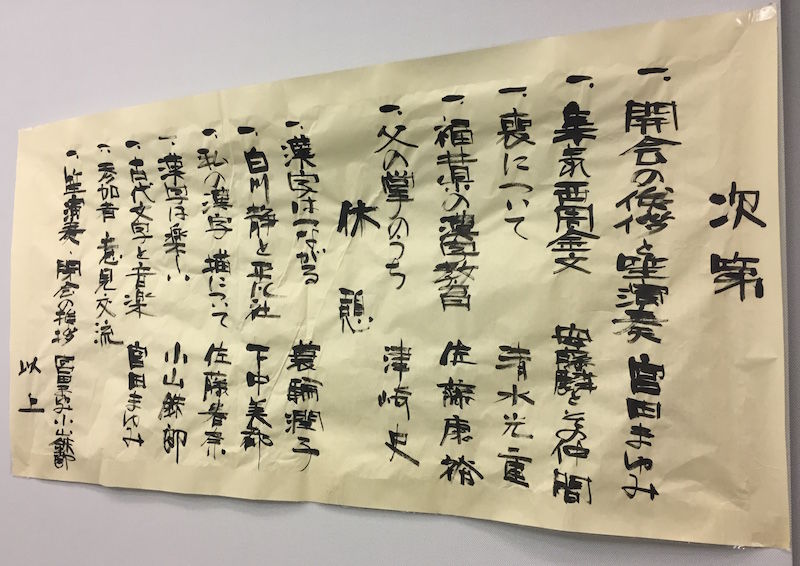 次第
一、開会の挨拶と笙演奏 宮田まゆみ
一、集家西周金文 安藤麟とその仲間
一、喪について 清水光重
一、福井県の漢字教育 佐藤康裕
一、父の掌のうち 津崎史
休憩
一、漢字はつながる 蓑輪潤子
一、白川静と平凡社 下中美都
一、私の漢字 描について 佐藤香奈
一、漢字は楽しい 小山鉄郎
一、古代文字と音楽 宮田まゆみ
一、参加者 意見交流
一、笙演奏、閉会の挨拶 宮田まゆみ 小山鉄郎
以上